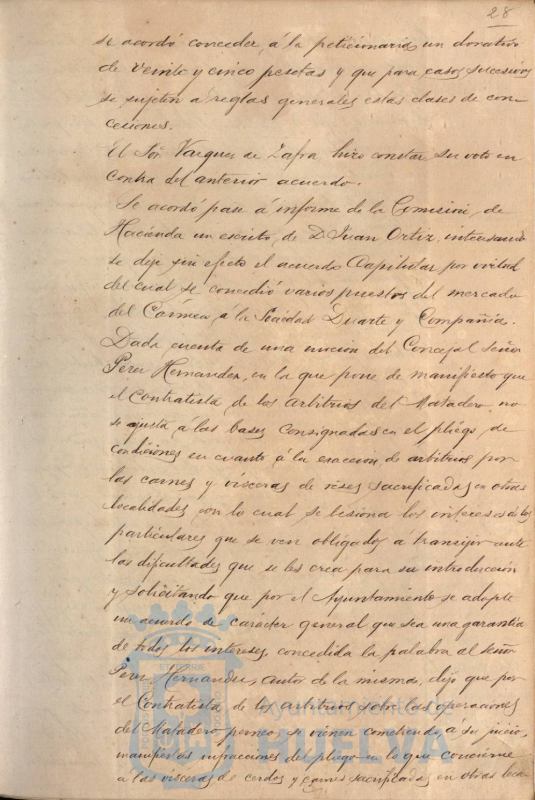 28
se acordó conceder, á la peticionaria, un donativo
de veinte y cinco pesetas y que para casos sucesivos
se sujeten a reglas generales estas clases de con-
cesiones.
El Sor. Vazquez de Zafra hizo constar su voto en
contra del anterior acuerdo.
Se acordó pase á informe de la Comision, de
Hacienda un escrito, de D. Juan Ortiz, interesando
se deje sin efecto el acuerdo Capitular por virtud
del cual se concedió varios puestos del mercado
del Cármen, a la Sociedad Duarte y Compañia.
Dada cuenta de una mocion del Concejal Señor
Perez Hernandez, en la que pone de manifiesto que
el Contratista, de los arbitrios del Matadero, no
se ajusta, á las bases consignadas en el pliego, de
condiciones en cuanto á la exaccion, de arbitrios por
las carnes y visceras de reses sacrificadas, en otras
localidades, con lo cual se lesiona los intereses de los
particulares que se ven obligados a transijir ante
las dificultades que se les crea para su introduccion
y solicitando que por el Ayuntamiento se adopte
un acuerdo de carácter general que sea una garantia
de todos los intereses, concedida la palabra al Señor
Perez Hernandez, autor de la misma, dijo que por
el Contratista, de los arbitrios sobre las operaciones
del Matadero, se vienen cometiendo, á su juicio,
manifiestas infracciones del pliego en lo que concierne
á las visceras de cerdos y carnes sacrificadas, en otras loca-
Ayuntamiento de
HUELVA